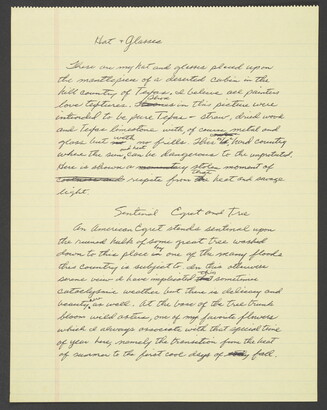 Hat + Glasses
These are my hat and glasses placed upon
the mantlepiece of a deserted cabin in the
hill country of Texas, I believe all painters
love textures. Those in this picture were
intended to be pure Texas - straw, dried wood
and Texas limestone with of course metal and
glass but with no frills. This is hard country
where the sun and heat can be dangerous to the unprotected.
Here is shown a momentary stolen moment of
respite from that heat and savage
light.
Sentinel Egret and Tree
An American Egret stands sentinel upon
the ruined hulk of some great tree washed
down to this place by one of the many floods
this country is subject to. In this otherwise
serene view I have implied this sometimes
cataclysmic weather but there is delicacy and
beauty as well. At the base of the tree trunk
bloom wild asters, one of my favorite flowers
which I always associate with that special time
of year here, namely the transition from the heat
of summer to the first cool days of fall.